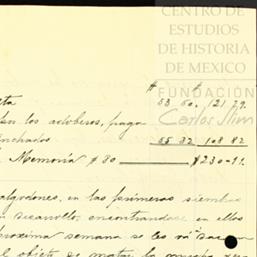 CENTRO DE
ESTUDIOS
DE HISTORIA
DE MEXICO
FUNDACIÓN
Carlos Slim
53 60. 121 79.
los adoberos, paga
55 32 108 82
Memoria $80 $230-11.
algodones, en las primeras siembras
desarrollo, encontrandose en ellos
proxima semana se les
objeto de matar la mucha